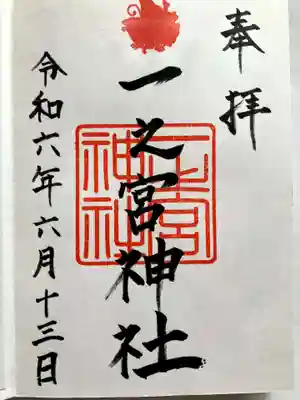 奉拝
一之宮神社
一之宮
神社
令和六年六月十三日